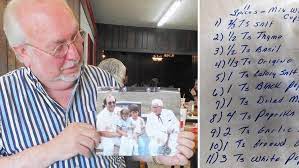 Spices - Mix W
1) ⅔ Ts Salt
2) ½ Ts Thyme
3) ½ Ts Basil
4) ⅓ Ts Origino
5) 1 Ts Celery Salt
6) 1 Ts Black
7) 1 Ts Dried M
8) 4 Ts Paprika
9) 2 Ts Garlic
10) 1 Ts Ground
11) 3 Ts White P